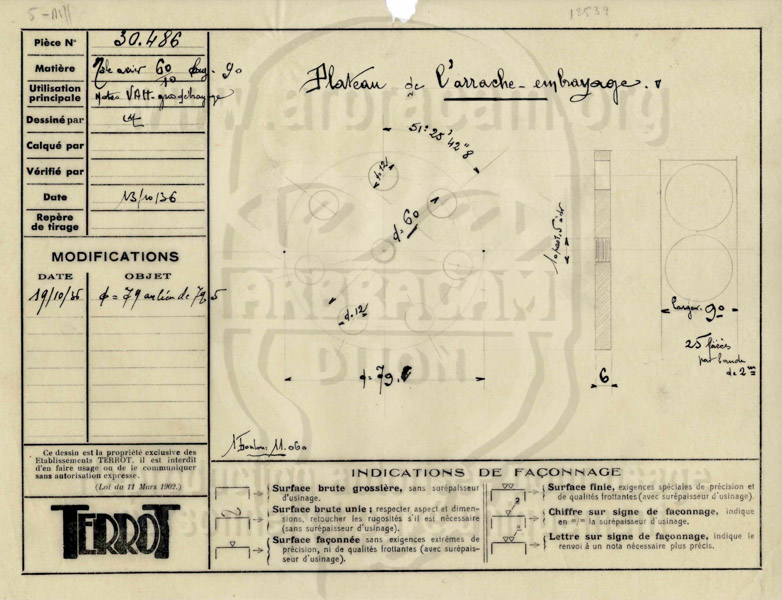 12539
Pièce N° 30.486
Matière Tôle acier 60 larg. 90
Utilisation principale Motos VATT-gros
Dessiné par
Calqué par
Vérifié par
Date 13/10/36
Repère de tirage
MODIFICATIONS
DATE OBJET
19/10/36 ϕ = 79 au lieu de 79,5
Plateau de l'arrache-embrayage.
51° 25' 42" 8
d. 12
d. 60
d. 12
ϕ = 79
10 pas 1,5
6
largeur 90
25 pièces
par bande
de 2 m
1 Boulon 11.060
Ce dessin est la propriété exclusive des
Etablissements TERROT, il est interdit
d'en faire usage ou de le communiquer
sans autorisation expresse.
(Loi du 11 Mars 1902.)
TERROT
INDICATIONS DE FAÇONNAGE
Surface brute grossière, sans surépaisseur
d'usinage.
Surface brute unie; respecter aspect et dimen-
sions, retoucher les rugosités s'il est nécessaire
(sans surépaisseur d'usinage).
Surface façonnée sans exigences extrêmes de
précision, ni de qualités frottantes (avec surépais-
seur d'usinage).
Surface finie, exigences spéciales de précision et
de qualités frottantes (avec surépaisseur d'usinage).
Chiffre sur signe de façonnage, indique
en m/m la surépaisseur d'usinage.
Lettre sur signe de façonnage, indique le
renvoi à un nota nécessaire plus précis.
www.arbracam.org
ARBRACAM
DIJON